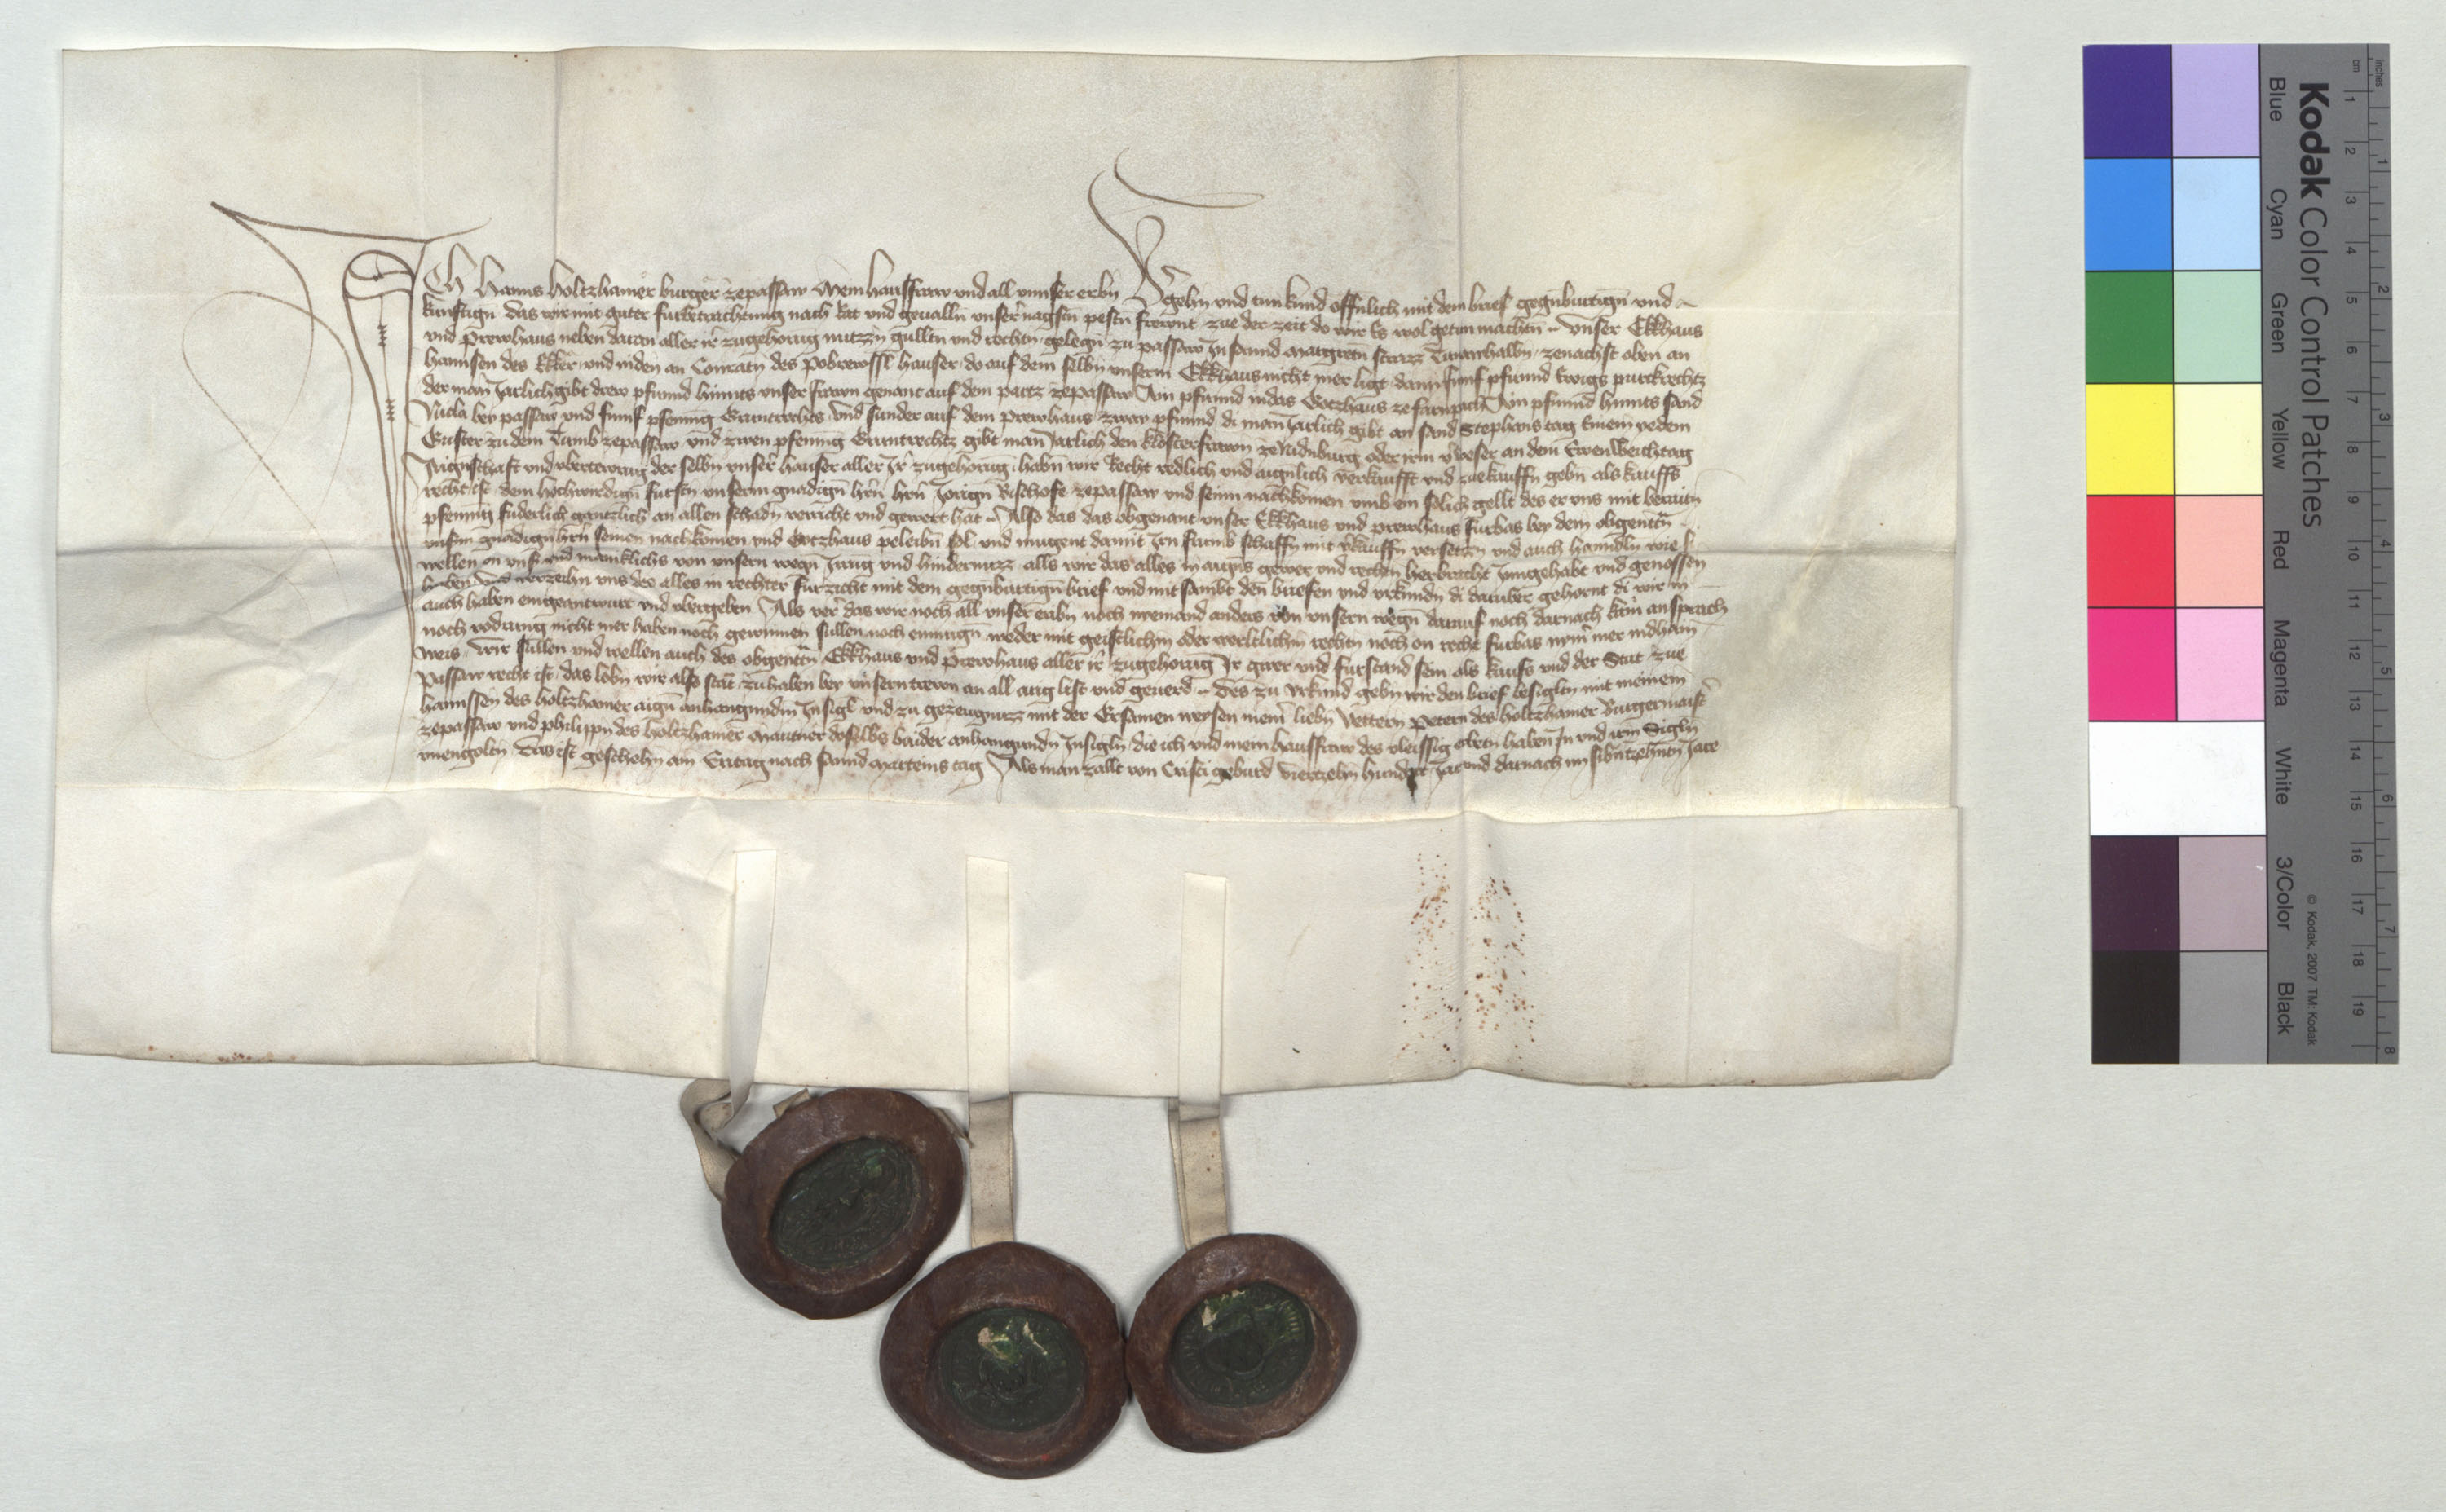 Ich Hanns Holtzhamer burger zepassaw Mein hausfraw und all unnser erbn Vergehn und tun kund offnlich mit dem brief gegnburtign und
kunftign das wir mit guter furbetrachtung nach Rat und gevalln unser nagstn pestn frewnt zue der zeit do wir es wol getun machtn Unser Ekkhaus
und Prewhaus neben daran aller ir zugehorung nutzn gulltn und rechtn gelegn zu passaw In sannd Margretn strazz zenachst oben an
Hannsen des Ekker und niden an Conratn des hauser do auf dem selbn unserm Ekkhaus nicht mer ligt dann funf pfunnd Ewigs purckrechtz
der man Jarlich gibt drew pfunnd hinnts unser frawn genant auf dem partz zepassaw Ain pfunnd in das Gotzhaus Ain pfunnd hinnts sand
Nicla bey passaw und funf pfening Gruntrechts Und sunder auf dem Prewhaus zway pfunnd di man Jarlich gibt an sand Stephans tag Einem yedem
Custer zu dem Tumb zepassaw und zwen pfening Gruntrechtz gibt man Jarlich den klosterfrawn ze Nidnburg oder irm an dem Ewenweichtag
Aigenschaft und ubertewrung der selbn unser hauser aller Ir zugehorung habn wir Recht redlich und aignlich verkaufft und zuekauffn gebn als kauffs
recht ist dem hochwirdign furstn unserm gnadign hern hern Jorign Bischofe zepassaw und seinn nachkomen umb ein solich gellt des er uns mit beraitn
pfening furderlich gantzlich an allen schadn verricht und gewert hat Also das das obgenant unser Ekkhaus und prewhaus furbas bey dem obgentn
unserm gnadign hern seinen nachkomen und Gotzhaus peleibn sol und mugent damit Irn frumb schaffn mit verkauffn versetzn und auch hanndln wie si
wellen on unser und maniklichs von unsern wegn Irrung und hindernuzz alls wir das alles in aigns gewer und rechtn herbracht Inngehabt und genossen
haben und verzeihn uns des alles in rechter furzicht mit dem gegnburtign brief und mit sambt den briefen und urkundn di daruber gehornt di wir in
auch haben eingeantwurt und ubergeben Als ver das wir noch all unser erbn noch nyemand anders von unsern wegn darauf noch darnach kain ansprach
noch vodrung nicht mer haben noch gewinnen sullen noch enmugn weder mit geistlichm oder werltlichm rechtn noch on recht furbas nymermer in dhain
weis Wir sullen und wellen auch des obgentn Ekkhaus und Prewhaus aller ir zugehorung Ir gwer und furstand sein als kaufs und der Stat zue
Passaw recht ist das lobn wir also stat zuhaben bey unsern trewn an all arig list und geverd Des zu Urkund gebn wir den brief besigltn mit meinem
hannssen des holtzhamer aign anhangundm Insigl und zu gezeugnuzz mit der Ersamen weysen meiner liebn Vettern Petern des holtzhamer Burgermaister
zepassaw und philippn des holtzhamer Mautner doselbs baider anhangundn Insigln die ich und mein hausfraw des vleissig gebetn haben In und irm Sigln
unengoltn Das ist geschehn am Eritag nach sannd Marteins tag Als man zallt von Cristi geburd Vierzehn hundert Jar und darnach im sibntzehntn Jare
Kodak Color Control Patches
Blue Cyan Green Yellow Red Magenta White 3/Color Black
© Kodak, 2007 TM: Kodak
cm 1 2 3 4 5 6 7 8 9 10 11 12 13 14 15 16 17 18 19
inches 1 2 3 4 5 6 7 8